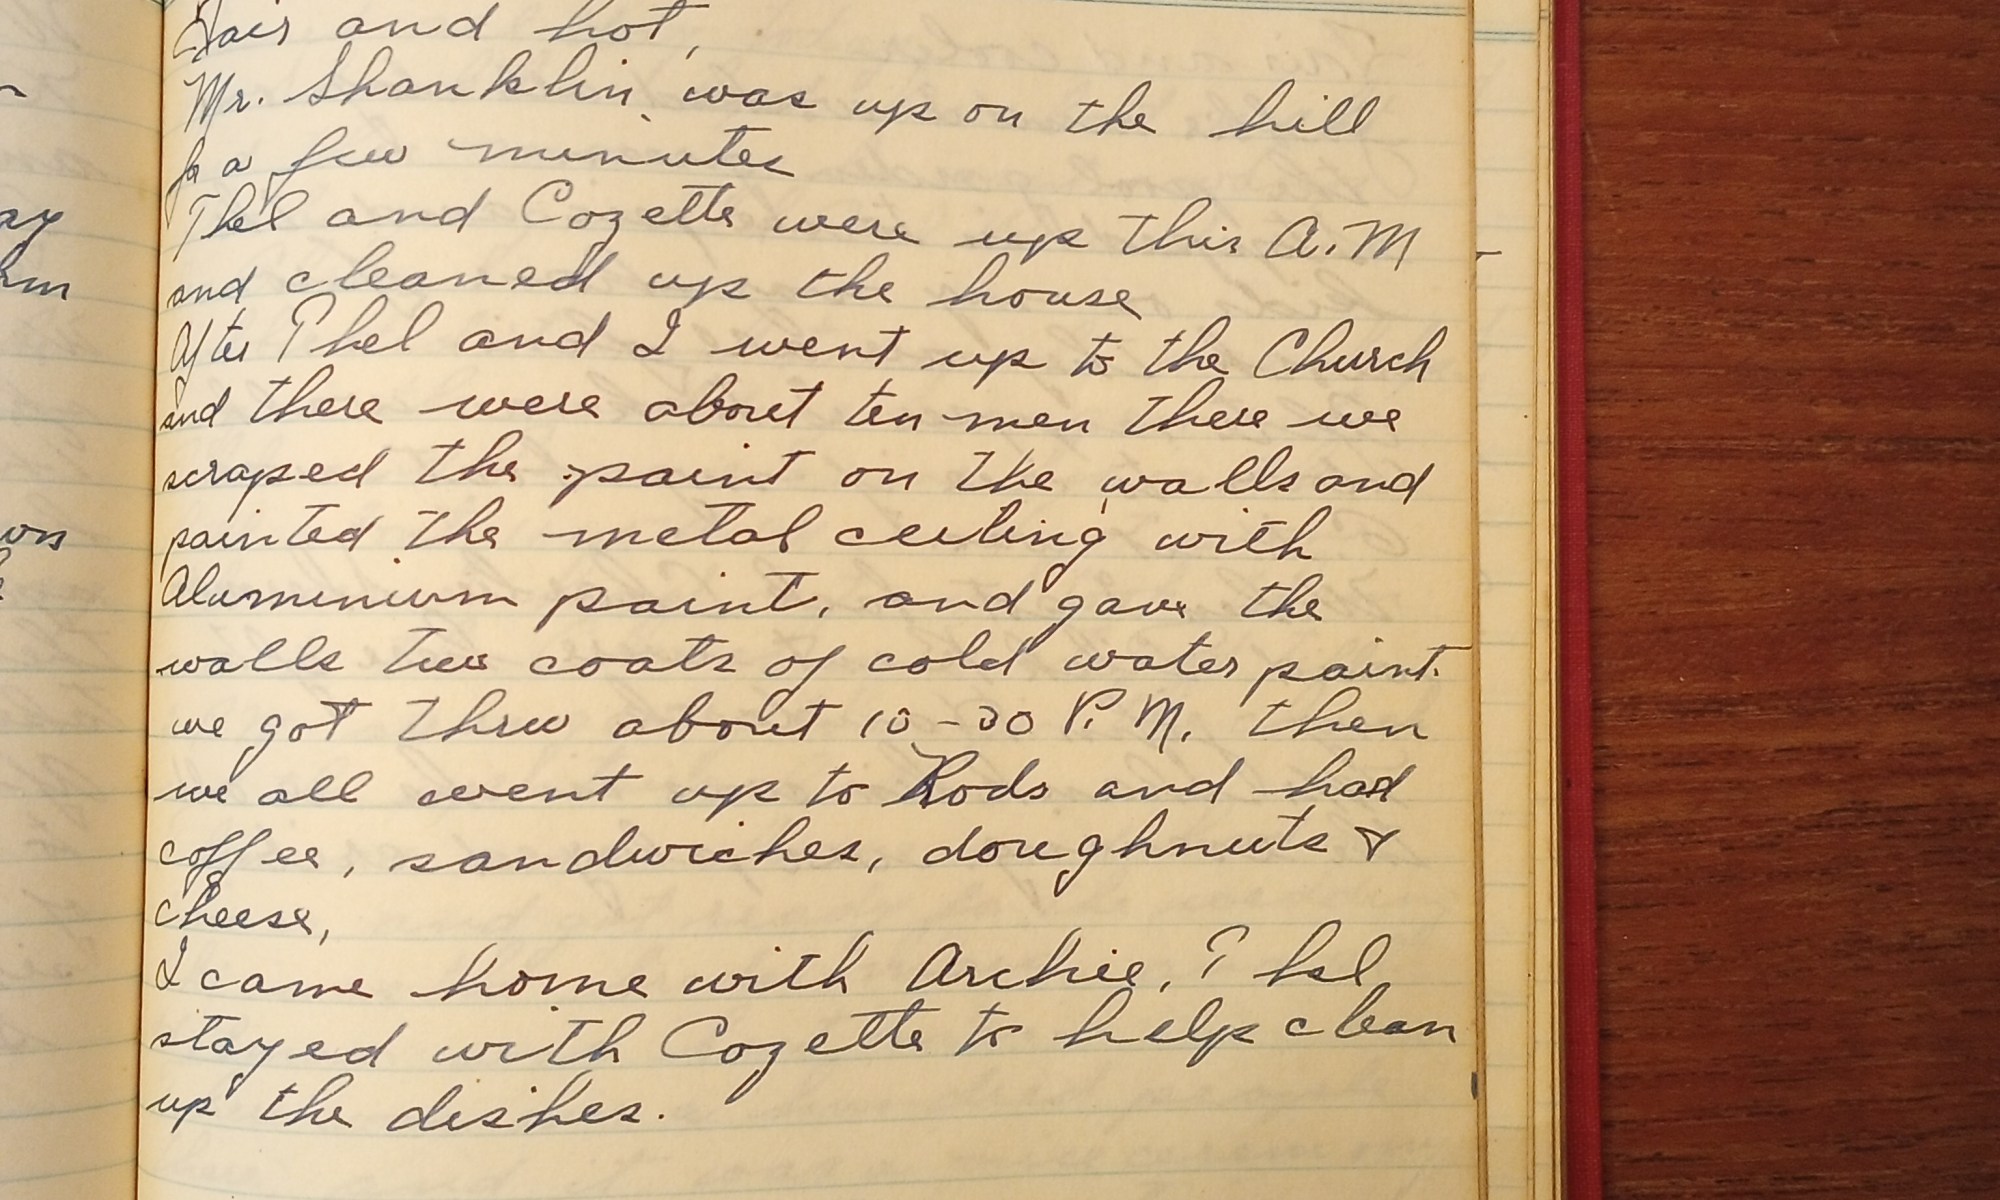 Fair and hot,
Mr. Shanklin was up on the hill
for a few minutes
Thel and Cozette were up this A.M
and cleaned up the house
After Thel and I went up to the Church
and there were about ten men there we
scraped the paint on the walls and
painted the metal ceiling with
Aluminium paint, and gave the
walls two coats of cold water paint.
we got thru about 10-30 P.M. then
we all went up to Rods and had
coffee, sandwiches, doughnuts &
cheese,
I came home with Archie, Thel
stayed with Cozette to help clean
up the dishes.